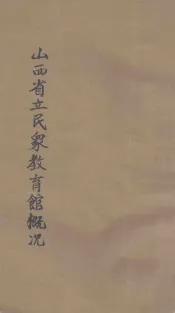 山西省立民眾教育館概况